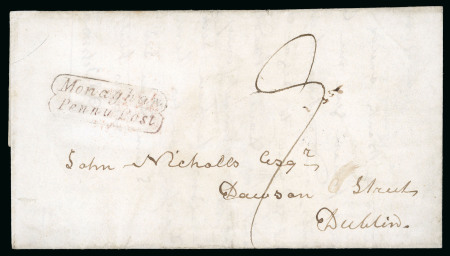 Monaghan
Penny Post
John Nicholls Esqr
Dawson Street
Dublin